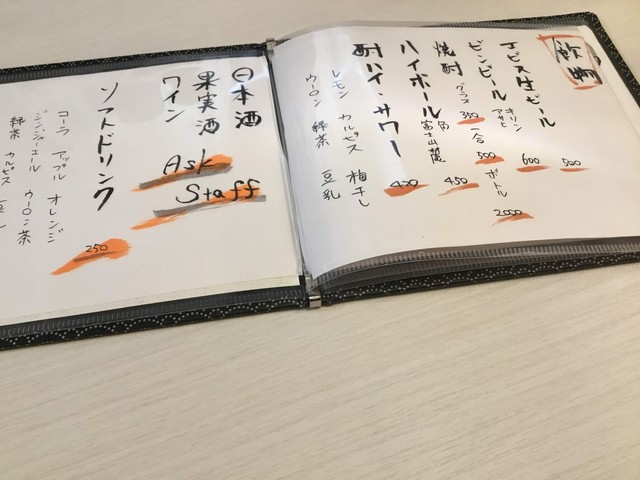 飲物
エビス生ビール 500
ビンビール キリン アサヒ 600
焼酎 グラス 350 一合 500 ボトル 2000
ハイボール 角 富士山麓 450
酎ハイ・サワー 420
レモン カルピス 梅干し
ウーロン 緑茶 豆乳
日本酒
果実酒
ワイン
Ask
Staff
ソフトドリンク 250
コーラ アップル オレンジ
ジンジャーエール ウーロン茶
緑茶 カルピス